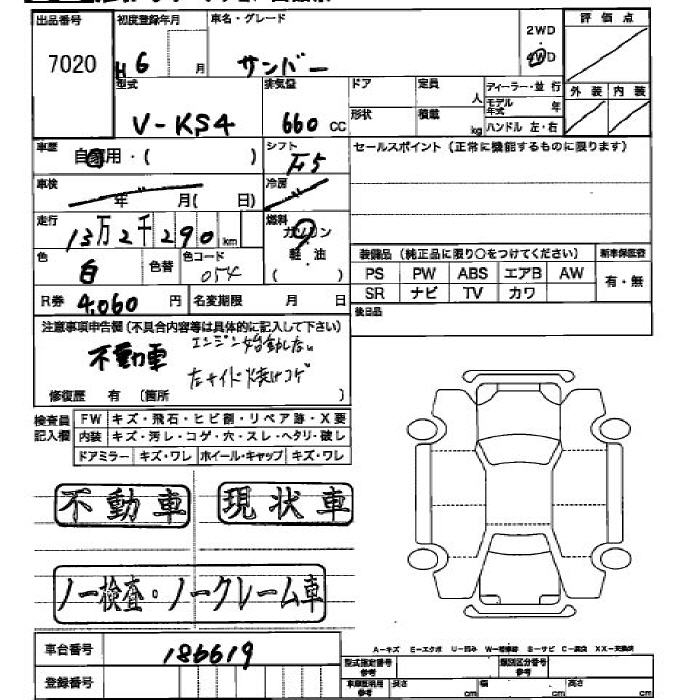 出品番号 初度登録年月 車名・グレード 2WD 評価点
7020 H6 月 サンバー 4WD
型式 排気量 ドア 定員 人 ディーラー・並行 外装 内装
V-KS4 660 CC 形状 積載 kg モデル年式 年
ハンドル 左・右
車歴 自家用・( ) シフト F5 セールスポイント (正常に機能するものに限ります)
車検 年 月( 日) 冷房
走行 13万2千290km 燃料 ガソリン
軽油
( )
色 白 色替 色コード 054
装備品 (純正品に限り○をつけてください) 新車保証書
PS PW ABS エアB AW 有・無
SR ナビ TV カワ
R券 4,060円 名変期限 月 日
後日品
注意事項申告欄 (不具合内容等は具体的に記入して下さい)
不動車 エンジン始動しない
左サイド焼けコゲ
修復歴 有 (箇所 )
検査員記入欄 FW キズ・飛石・ヒビ割・リペア跡・X要
内装 キズ・汚レ・コゲ・穴・スレ・ヘタリ・破レ
ドアミラー キズ・ワレ ホイール・キャップ キズ・ワレ
不動車 現状車
ノー検査・ノークレーム車
A-キズ E-エクボ U-凹み W-補修跡 S-サビ C-腐食 XX-交換済
車台番号 186619
型式指定番号 類別区分番号
登録番号 車庫証明用参考 長さ cm 幅 cm 高さ cm